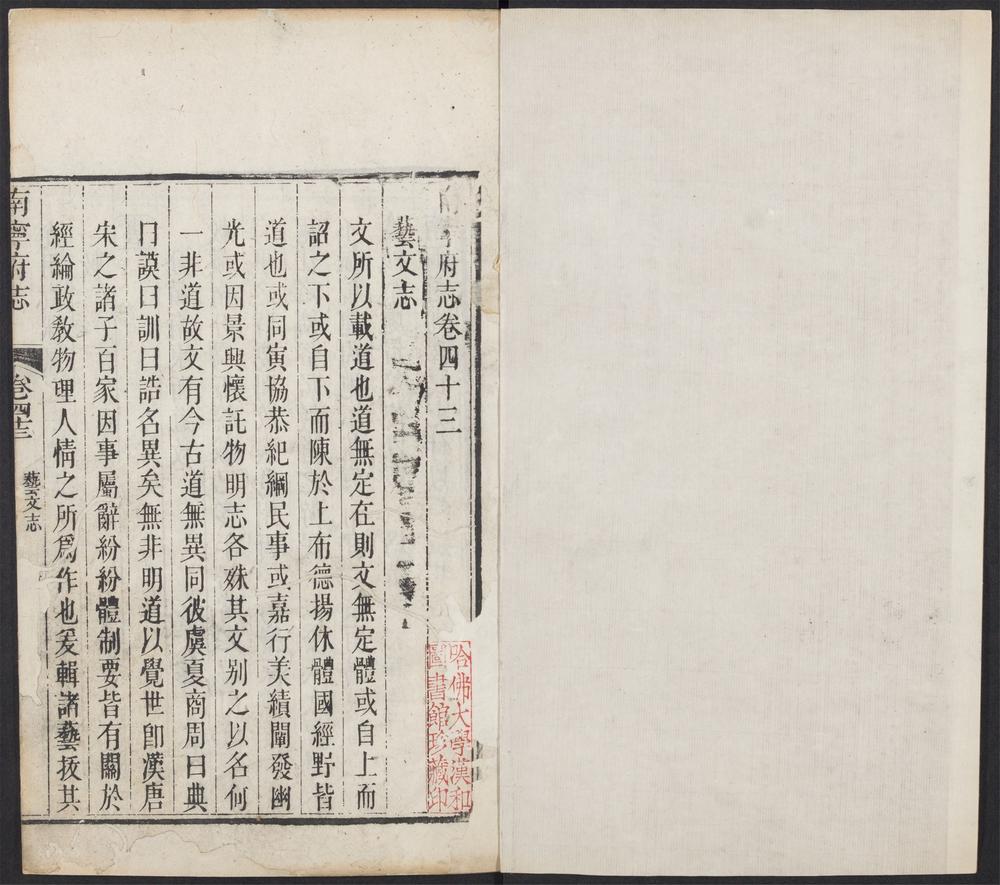 南寧府志卷四十三
藝文志
文所以載道也道無定在則文無定體或自上而
詔之下或自下而陳於上布德揚休體國經野皆
道也或同寅協恭紀綱民事或嘉行美績闡發幽
光或因景興懷託物明志各殊其文别之以名何
一非道故文有今古道無異同彼虞夏商周曰典
曰謨曰訓曰誥名異矣無非明道以覺世卽漢唐
宋之諸子百家因事屬辭紛紛體制要皆有關於
經綸政敎物理人情之所爲作也爰輯諸藝按其
南寧府志
卷四十三
藝文志
哈佛大學漢和
圖書館珍藏印